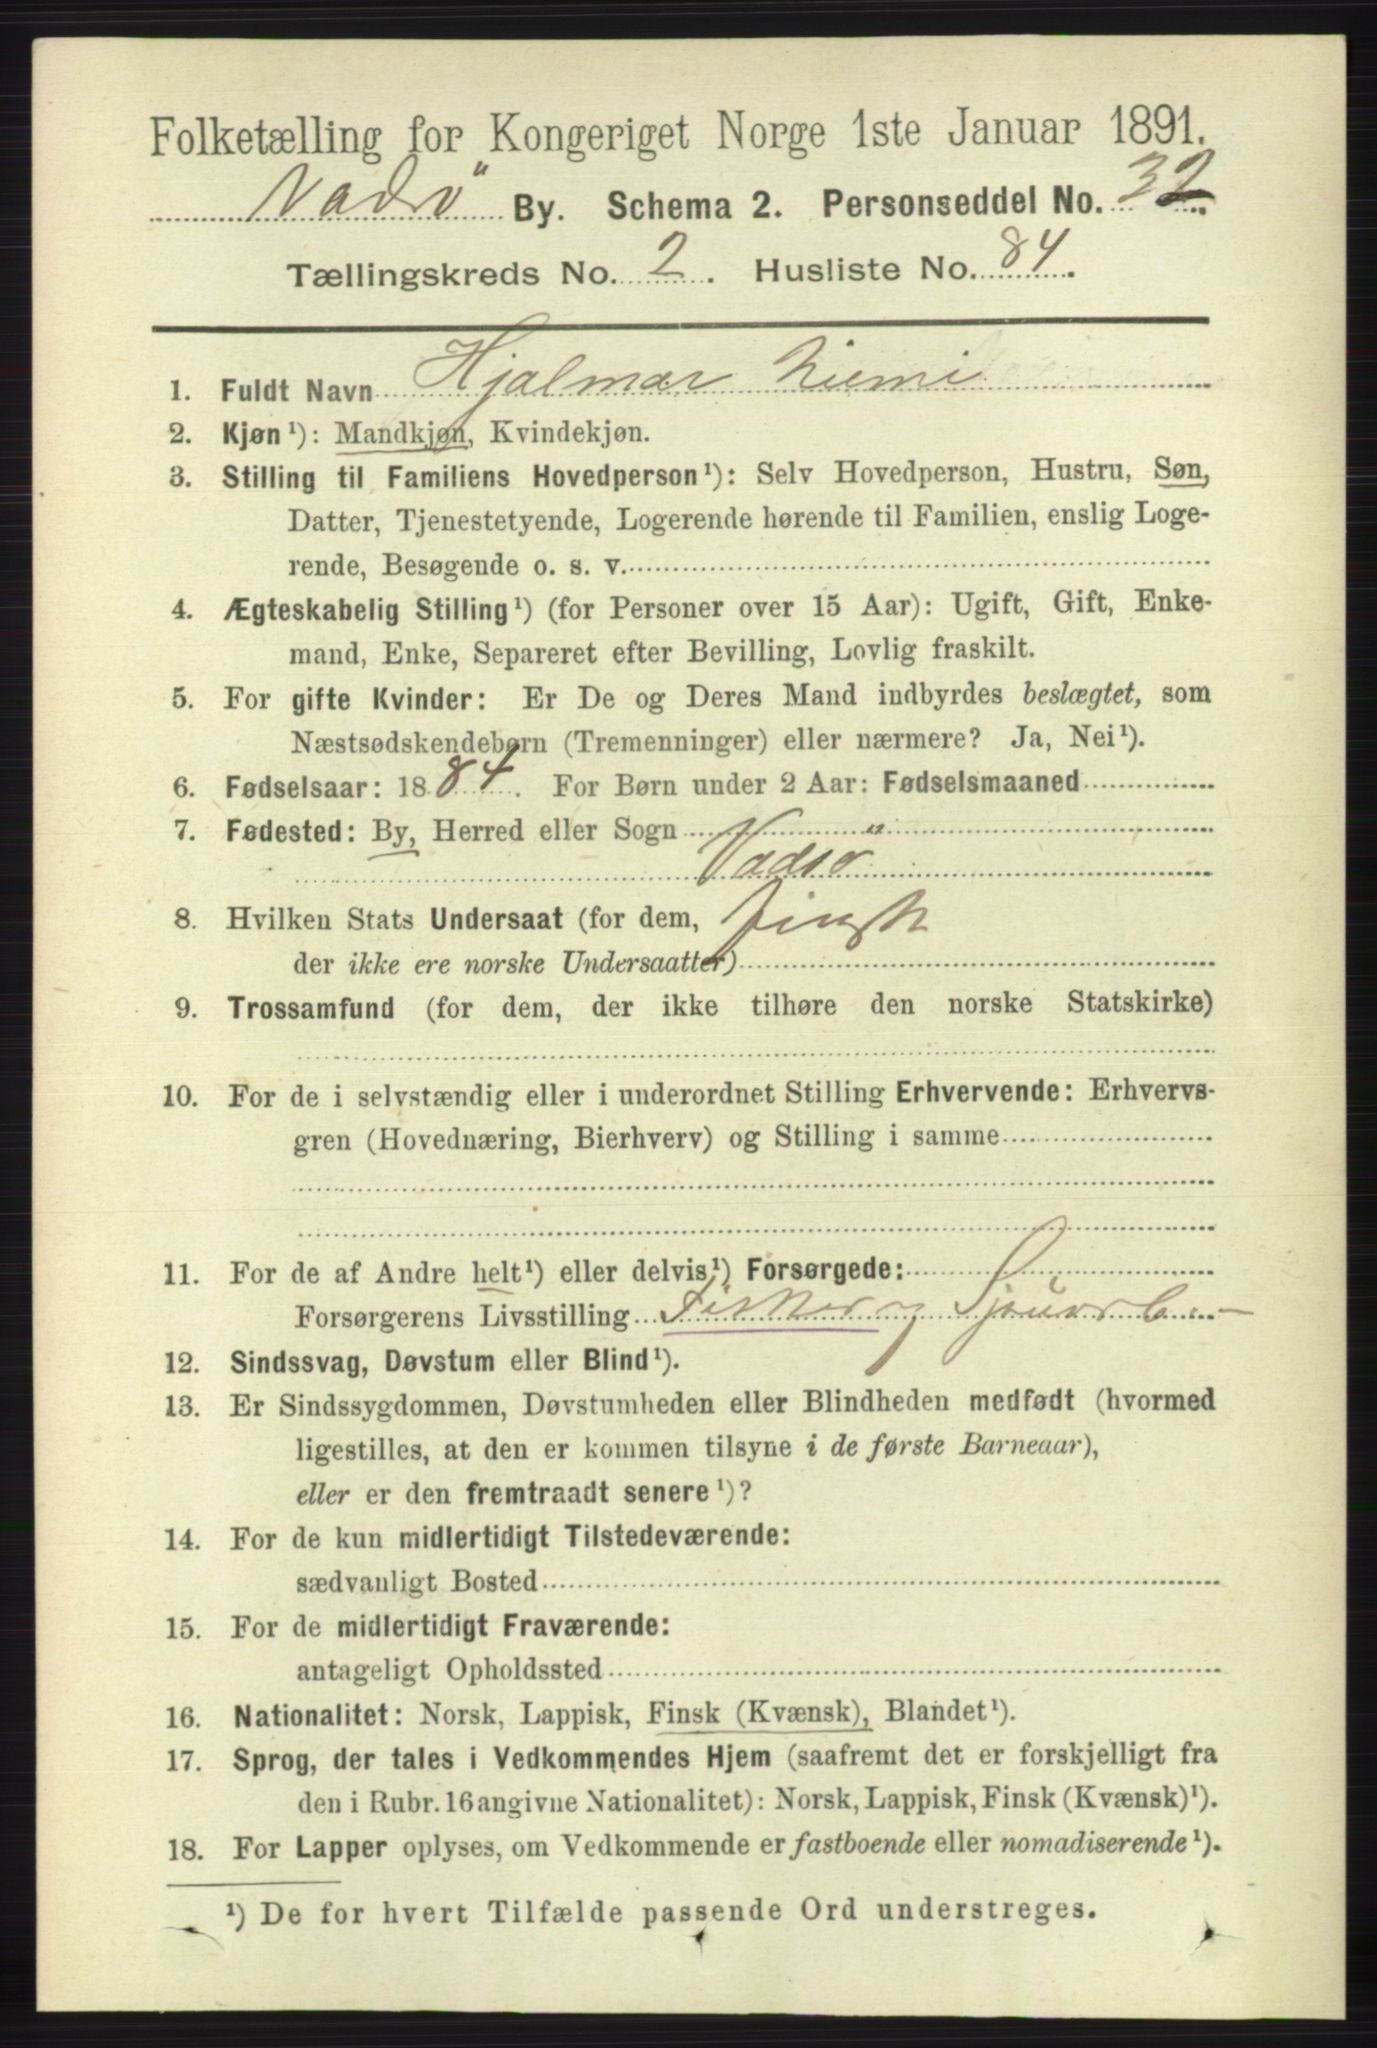 Folketælling for Kongeriget Norge 1ste Januar 1891.
Vadsö By. Schema 2. Personseddel No. 32
Tællingskreds No. 2. Husliste No. 84.
1. Fuldt Navn Hjalmar Niemi
2. Kjøn¹): Mandkjøn, Kvindekjøn.
3. Stilling til Familiens Hovedperson¹): Selv Hovedperson, Hustru, Søn,
Datter, Tjenestetyende, Logerende hørende til Familien, enslig Loge-
rende, Besøgende o. s. v.
4. Ægteskabelig Stilling¹) (for Personer over 15 Aar): Ugift, Gift, Enke-
mand, Enke, Separeret efter Bevilling, Lovlig fraskilt.
5. For gifte Kvinder: Er De og Deres Mand indbyrdes beslægtet, som
Næstsødskendebørn (Tremenninger) eller nærmere? Ja, Nei¹).
6. Fødselsaar: 1884. For Børn under 2 Aar: Fødselsmaaned
7. Fødested: By, Herred eller Sogn
Vadsö
8. Hvilken Stats Undersaat (for dem, Finsk
der ikke ere norske Undersaatter)
9. Trossamfund (for dem, der ikke tilhøre den norske Statskirke)
10. For de i selvstændig eller i underordnet Stilling Erhvervende: Erhvervs-
gren (Hovednæring, Bierhverv) og Stilling i samme
11. For de af Andre helt¹) eller delvis¹) Forsørgede:
Forsørgerens Livsstilling Fisker og
12. Sindssvag, Døvstum eller Blind¹).
13. Er Sindssygdommen, Døvstumheden eller Blindheden medfødt (hvormed
ligestilles, at den er kommen tilsyne i de første Barneaar),
eller er den fremtraadt senere¹)?
14. For de kun midlertidigt Tilstedeværende:
sædvanligt Bosted
15. For de midlertidigt Fraværende:
antageligt Opholdssted
16. Nationalitet: Norsk, Lappisk, Finsk (Kvænsk), Blandet¹).
17. Sprog, der tales i Vedkommendes Hjem (saafremt det er forskjelligt fra
den i Rubr. 16 angivne Nationalitet): Norsk, Lappisk, Finsk (Kvænsk)¹).
18. For Lapper oplyses, om Vedkommende er fastboende eller nomadiserende¹).
¹) De for hvert Tilfælde passende Ord understreges.